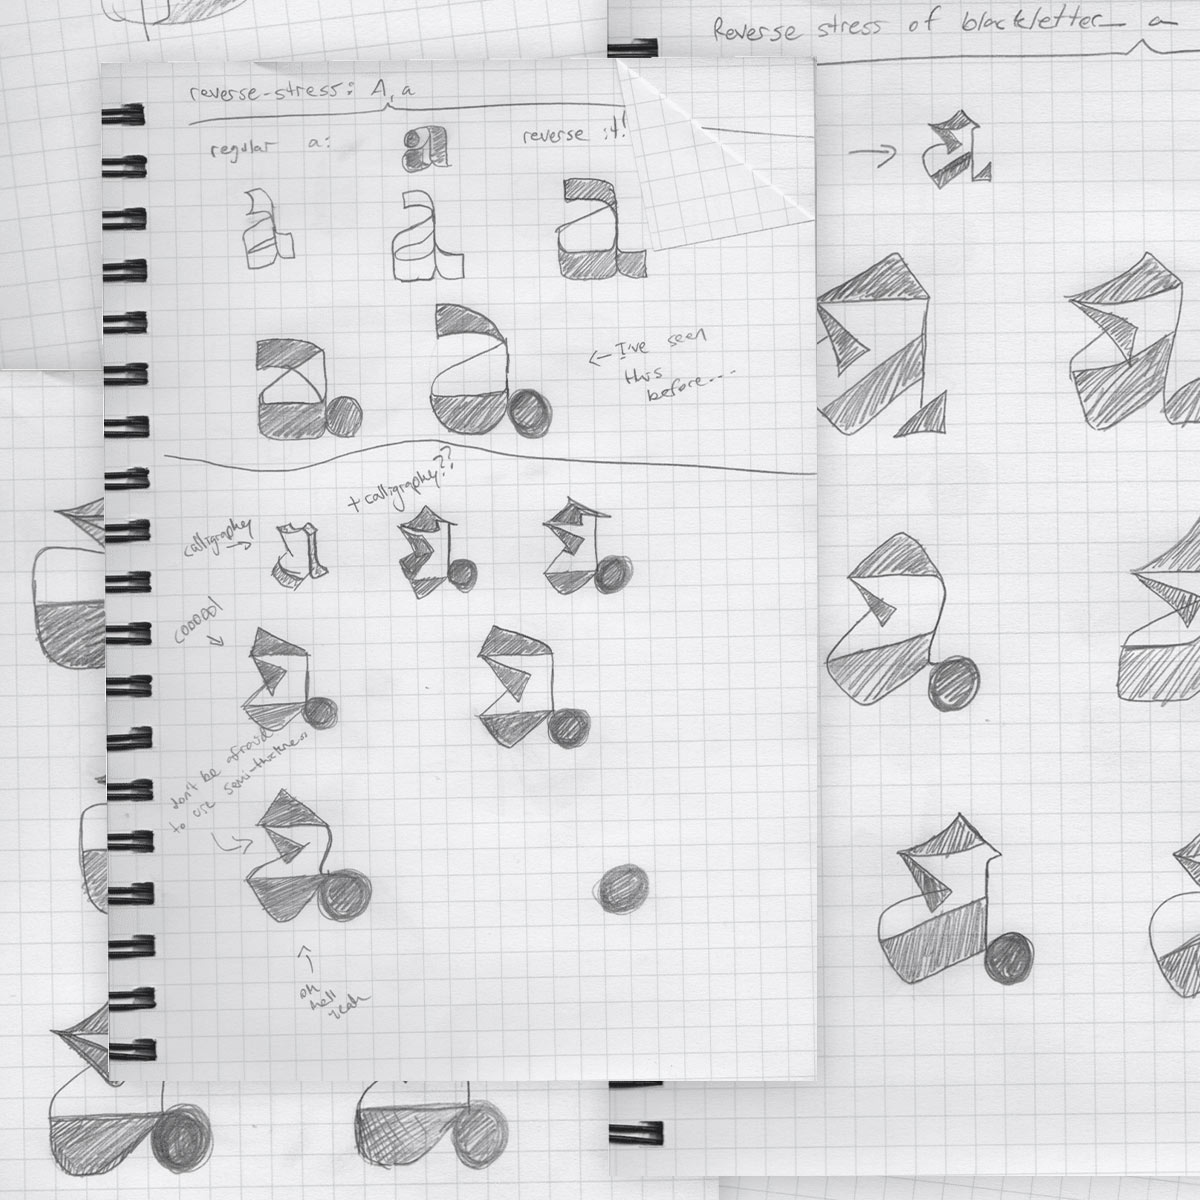 Reverse stress of blackletter a
reverse-stress: A, a
regular a:
reverse it!
← I've seen
this
before...
+ calligraphy??
calligraphy →
cooool
don't be afraid
to use semi-thickness
oh
hell
yeah